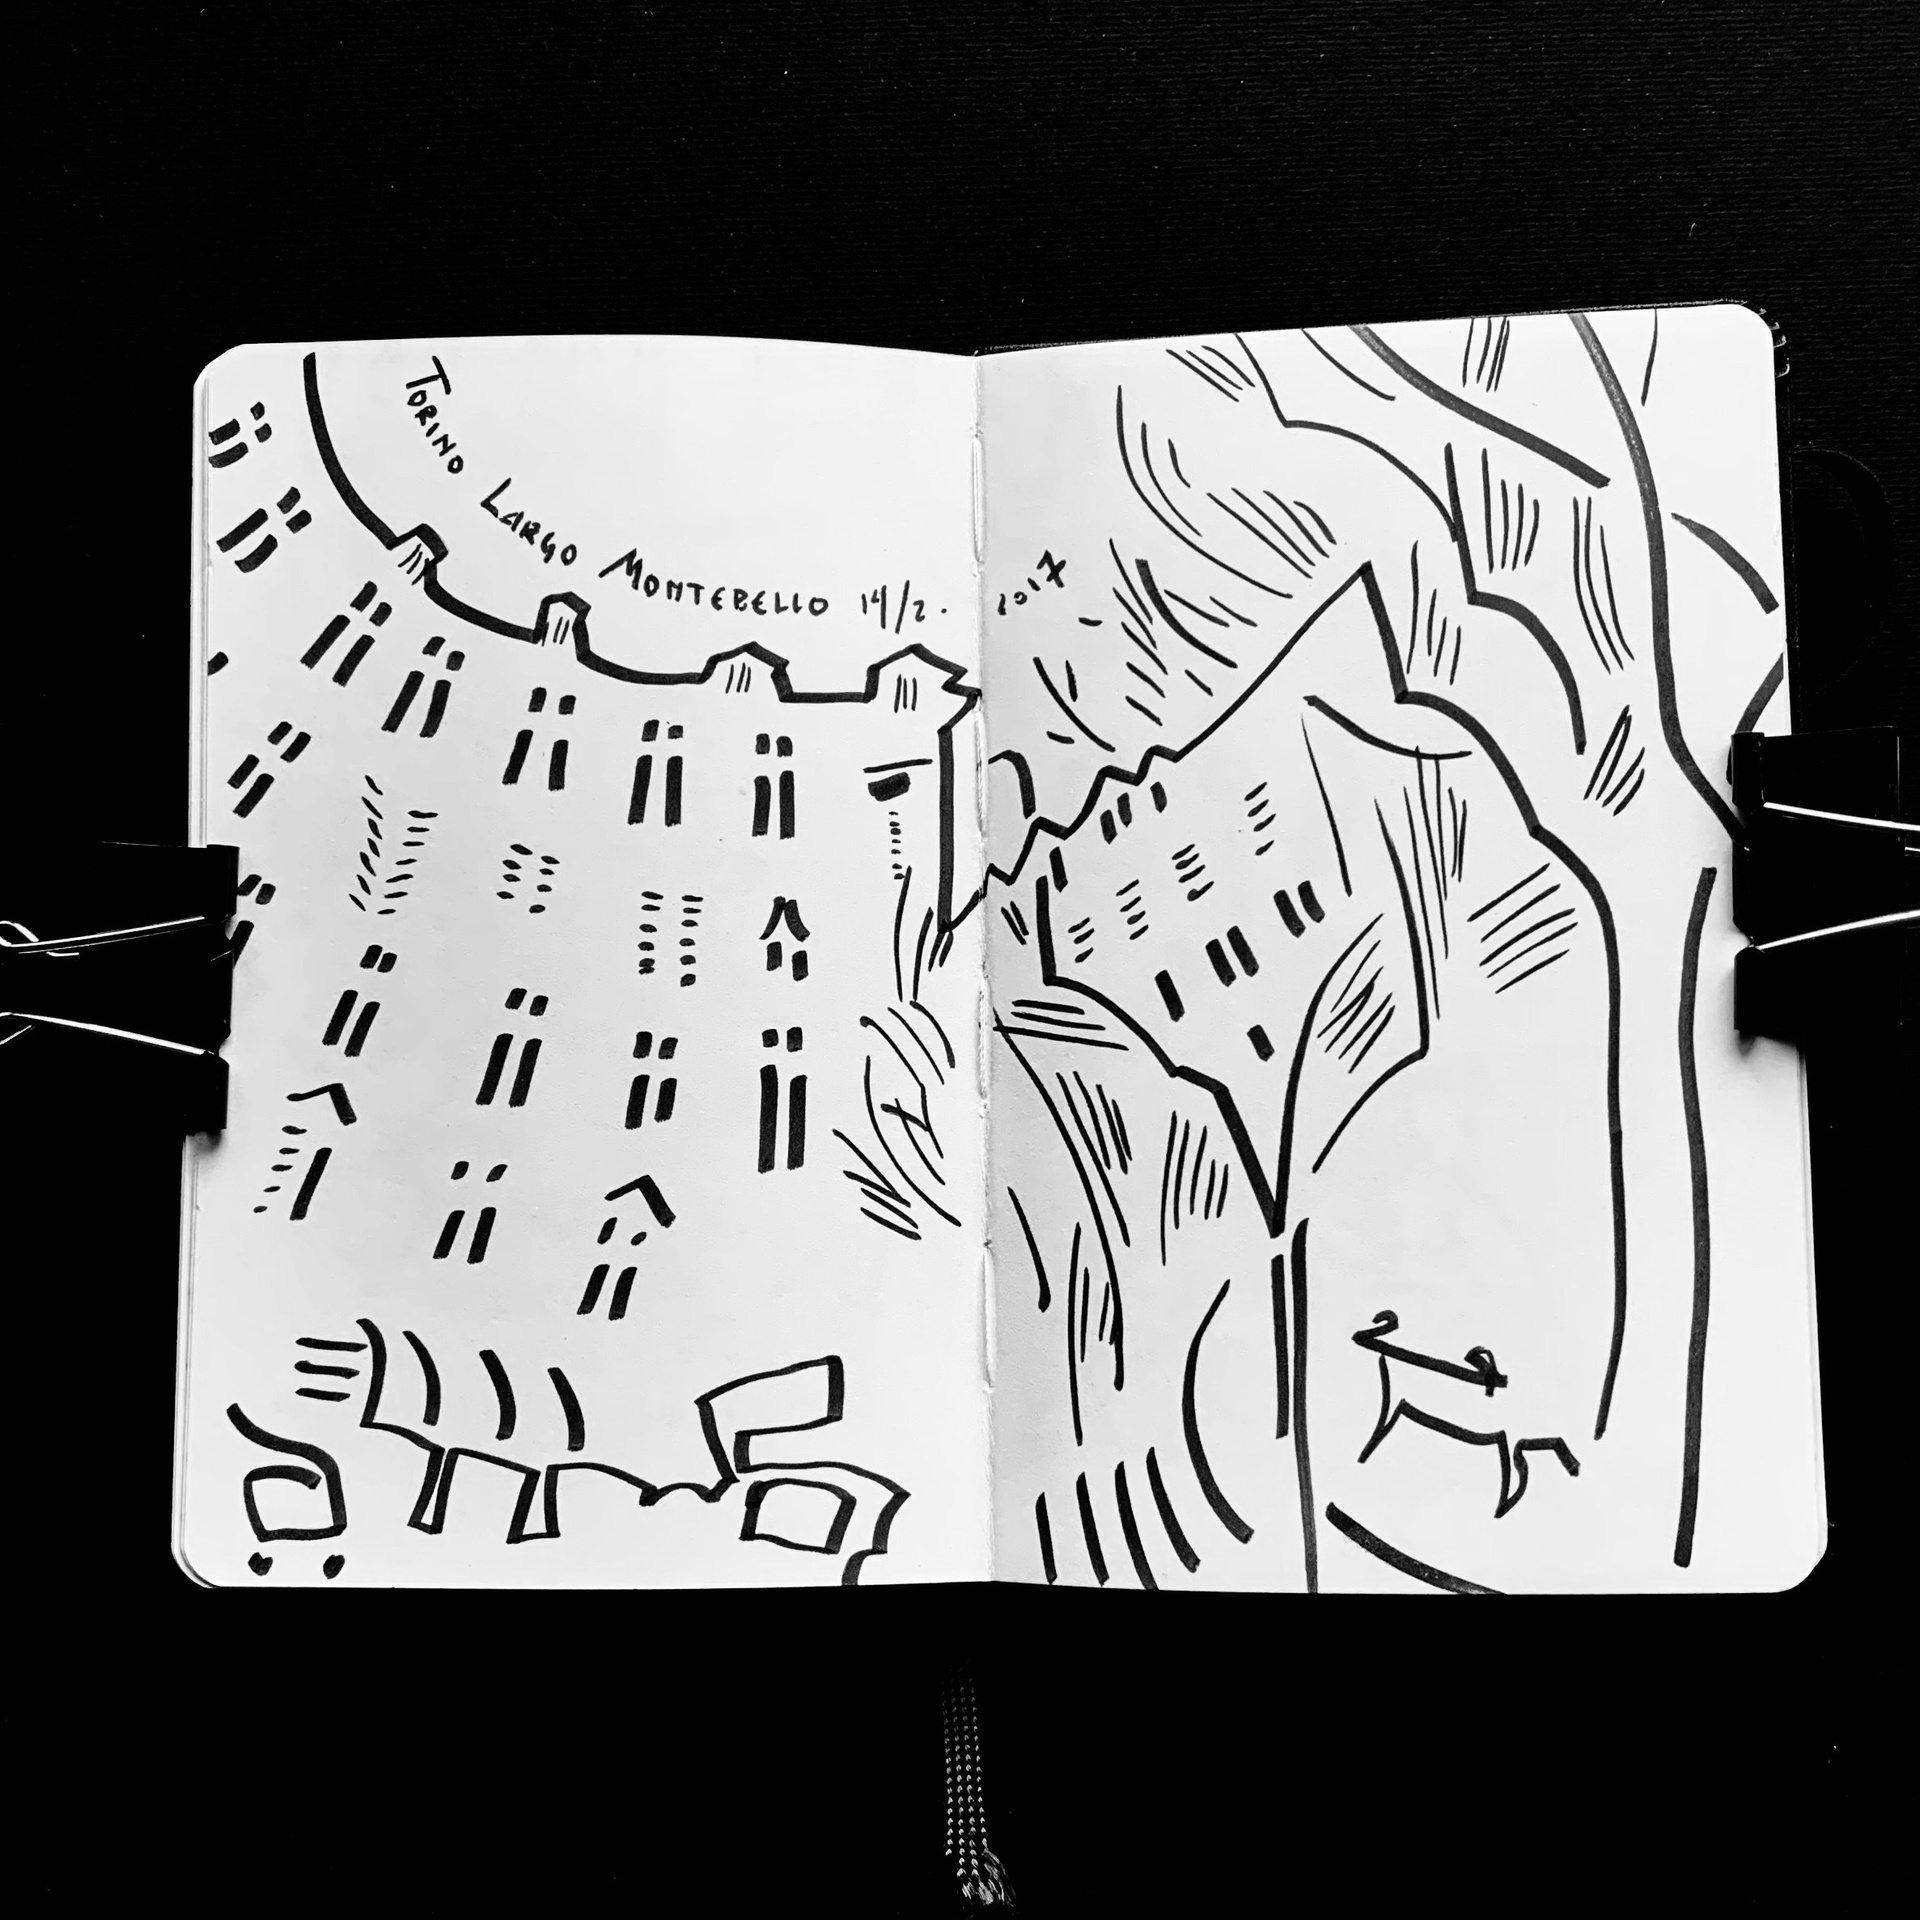 TORINO LARGO MONTEBELLO 14/2. 2017